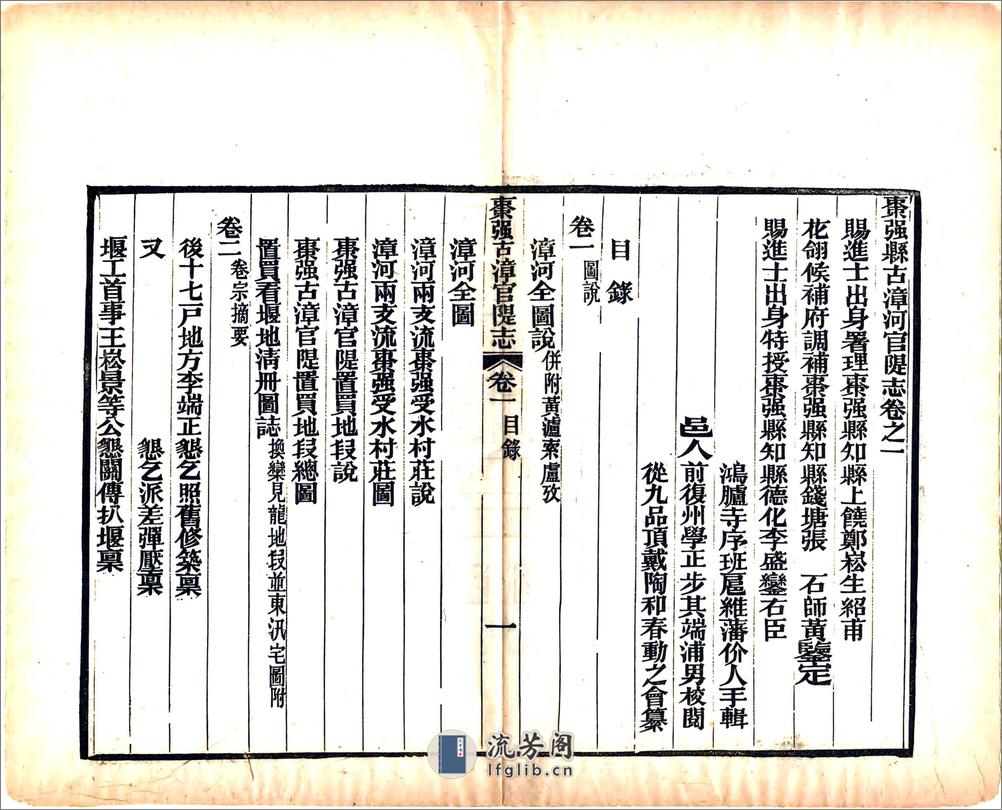 棗强縣古漳河官隄志卷之一
賜進士出身署理棗强縣知縣上饒鄭崧生紹甫
花翎候補府調補棗强縣知縣錢塘張 石師黃鑒定
賜進士出身特授棗强縣知縣德化李盛鑾右臣
鴻臚寺序班扈維藩价人手輯
邑人前復州學正步其端浦男校閱
從九品頂戴陶和春動之會纂
目錄
卷一 圖說
漳河全圖說 併附黃瀘索盧攷
棗强古漳官隄志 卷一 目錄 一
漳河全圖
漳河兩支流棗强受水村莊說
漳河兩支流棗强受水村莊圖
棗强古漳官隄置買地段說
棗强古漳官隄置買地段總圖
置買看堰地清册圖誌 換欒見龍地段並東汛宅圖附
卷二 卷宗摘要
後十七戸地方李端正懇乞照舊修築稟
又 懇乞派差彈壓稟
堰工首事王崧景等公懇關傳扒堰稟
流芳阁
lfglib.cn